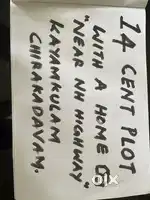 14 CENT PLOT
WITH A HOME
"NEAR NH HIGHWAY"
KAYAMKULAM
CHIRAKADAVAM.
olx